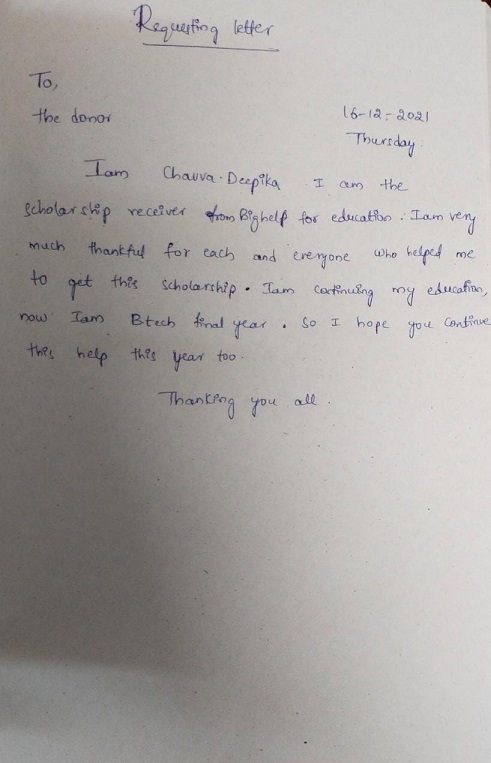 Requesting letter
To,
the donor
16-12-2021
Thursday.
Iam Chavva. Deepika I am the
scholarship receiver from Bighelp for education. Iam very
much thankful for each and everyone who helped me
to get this scholarship. Iam continuing my education,
now Iam Btech final year. so I hope you continue
this help this year too.
Thanking you all.